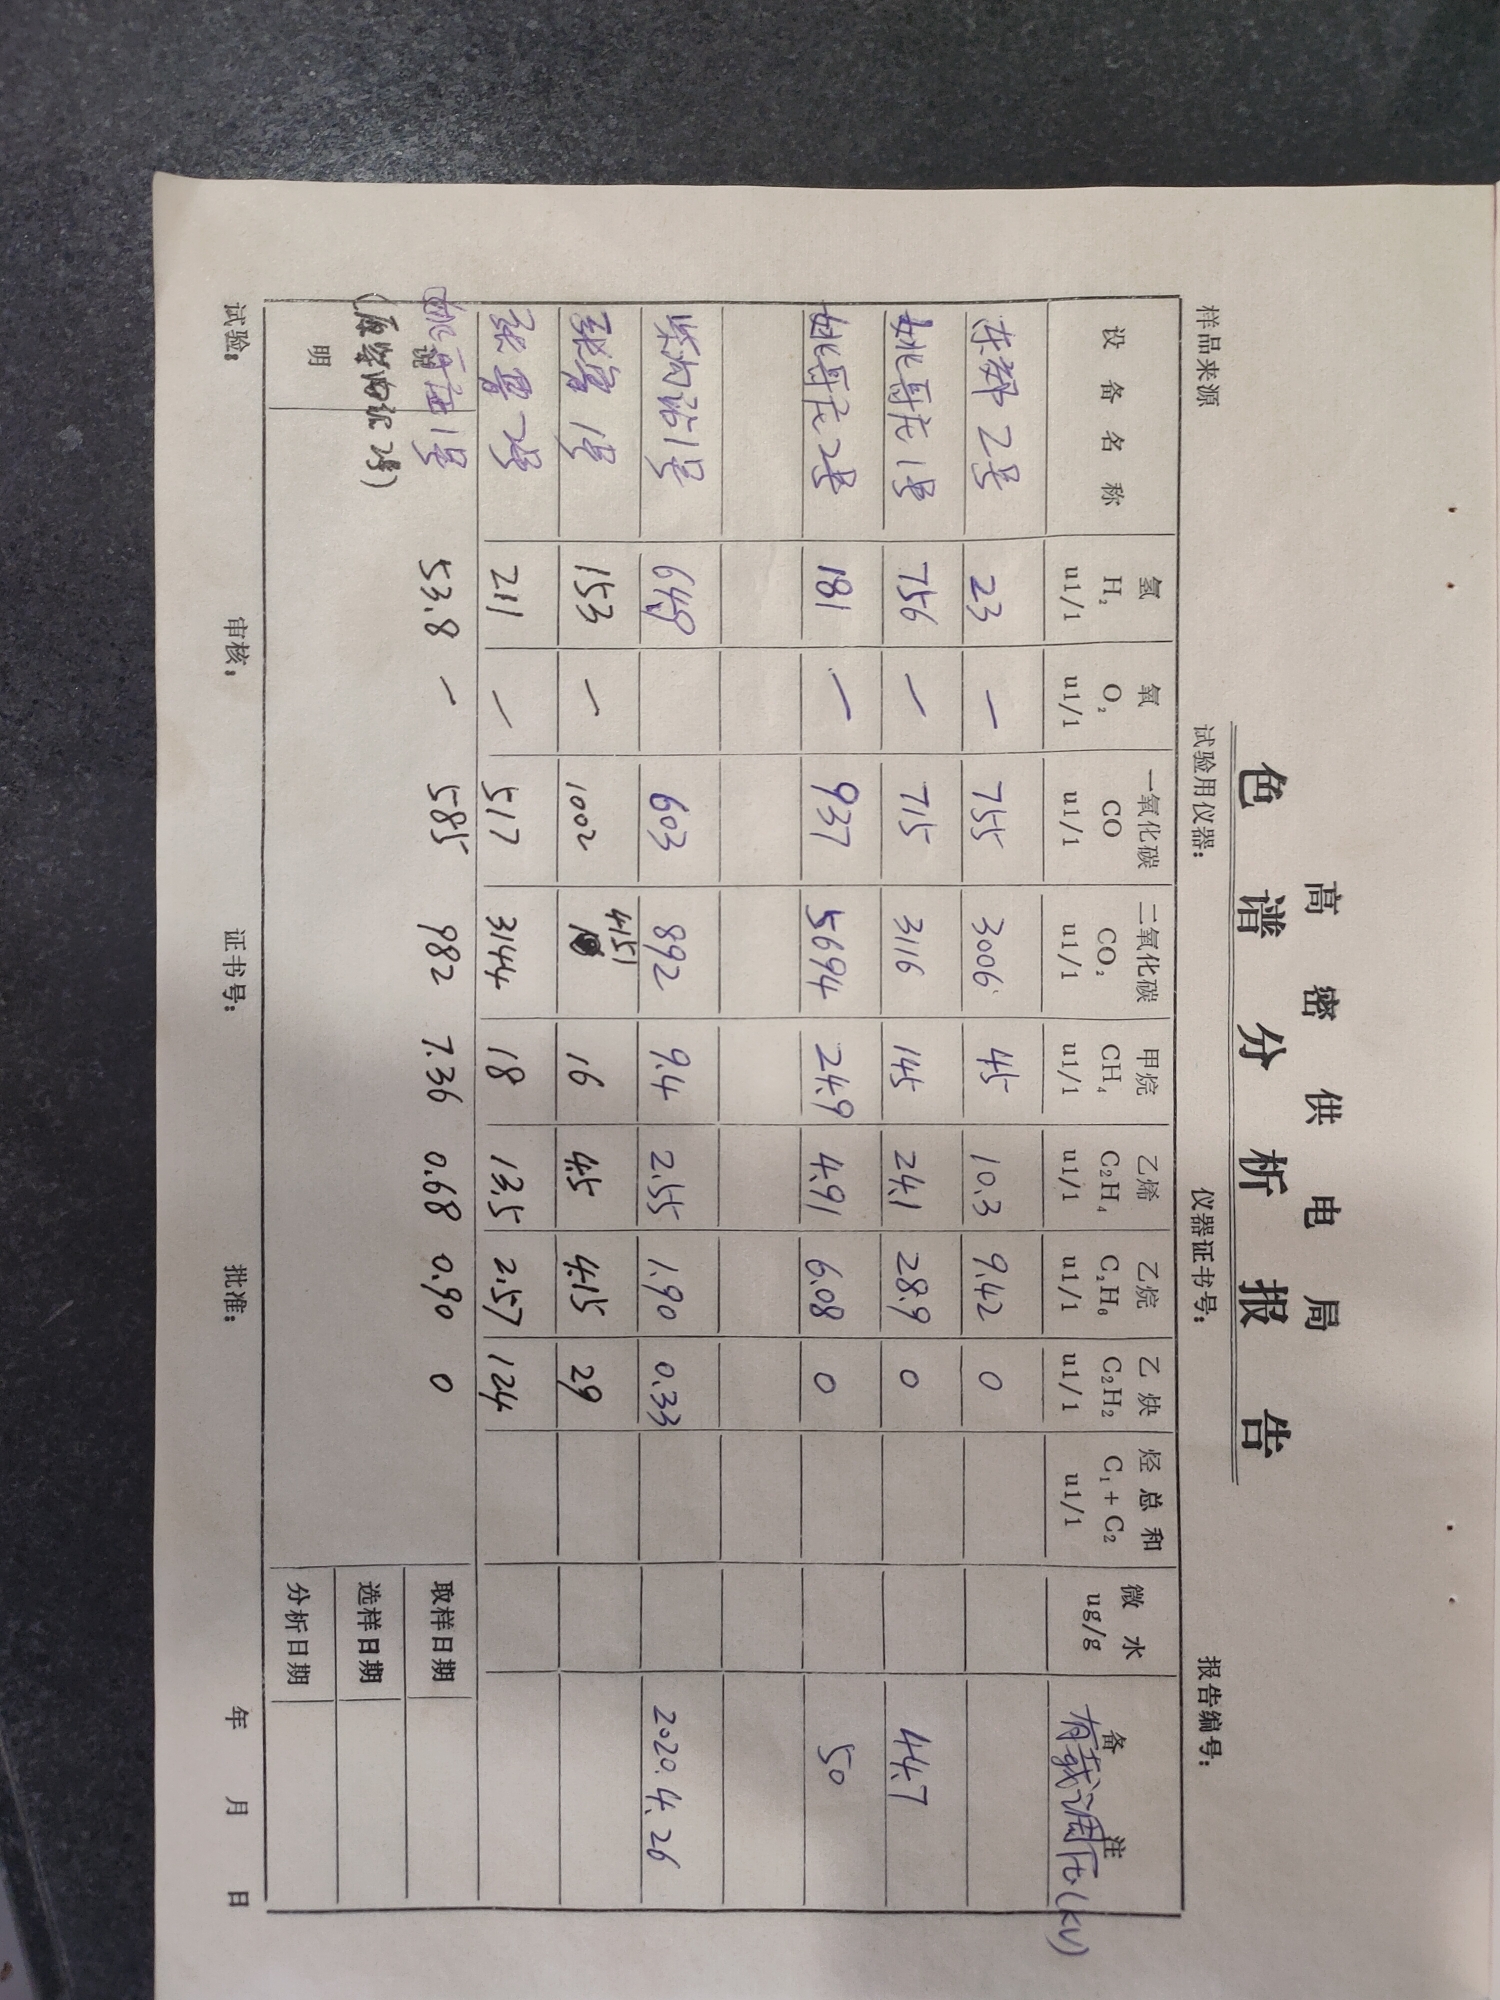 高密供电局
色谱分析报告
样品来源 试验用仪器： 仪器证书号： 报告编号：
设备名称 氢 H₂ ul/l 氧 O₂ ul/l 一氧化碳 CO ul/l 二氧化碳 CO₂ ul/l 甲烷 CH₄ ul/l 乙烯 C₂H₄ ul/l 乙烷 C₂H₆ ul/l 乙炔 C₂H₂ ul/l 烃总和 C₁+C₂ ul/l 微水 ug/g 备注 有载调压(kV)
2号 23 — 755 3006 45 10.3 9.42 0
姚哥庄1号 756 — 715 3116 145 24.1 28.9 0 44.7
姚哥庄2号 181 — 937 5694 24.9 4.91 6.08 0 50
柴沟站1号 603 892 9.4 2.55 1.90 0.33 2020.4.26
张鲁1号 153 — 1002 4151 16 4.5 4.15 29
张鲁2号 211 — 517 3144 18 13.5 2.57 124
1号 53.8 — 585 982 7.36 0.68 0.90 0
(原柴沟站2号)
说明
取样日期
选样日期
分析日期
试验： 审核： 证书号： 批准： 年 月 日